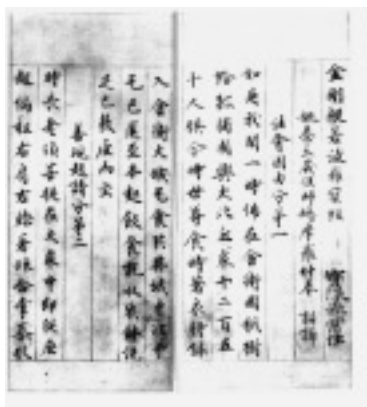 金剛般若波羅蜜經
姚秦三藏法師鳩摩羅什奉 詔譯
法會因由分第一
如是我聞一時佛在舍衛國祇樹
給孤獨園與大比丘眾千二百五
十人俱尒時世尊食時著衣持鉢
入舍衛大城乞食於其城中次第
乞已還至本處飯食訖收衣鉢洗
足已敷座而坐
善現起請分第二
時長老須菩提在大眾中即從座
起偏袒右肩右膝著地合掌恭敬